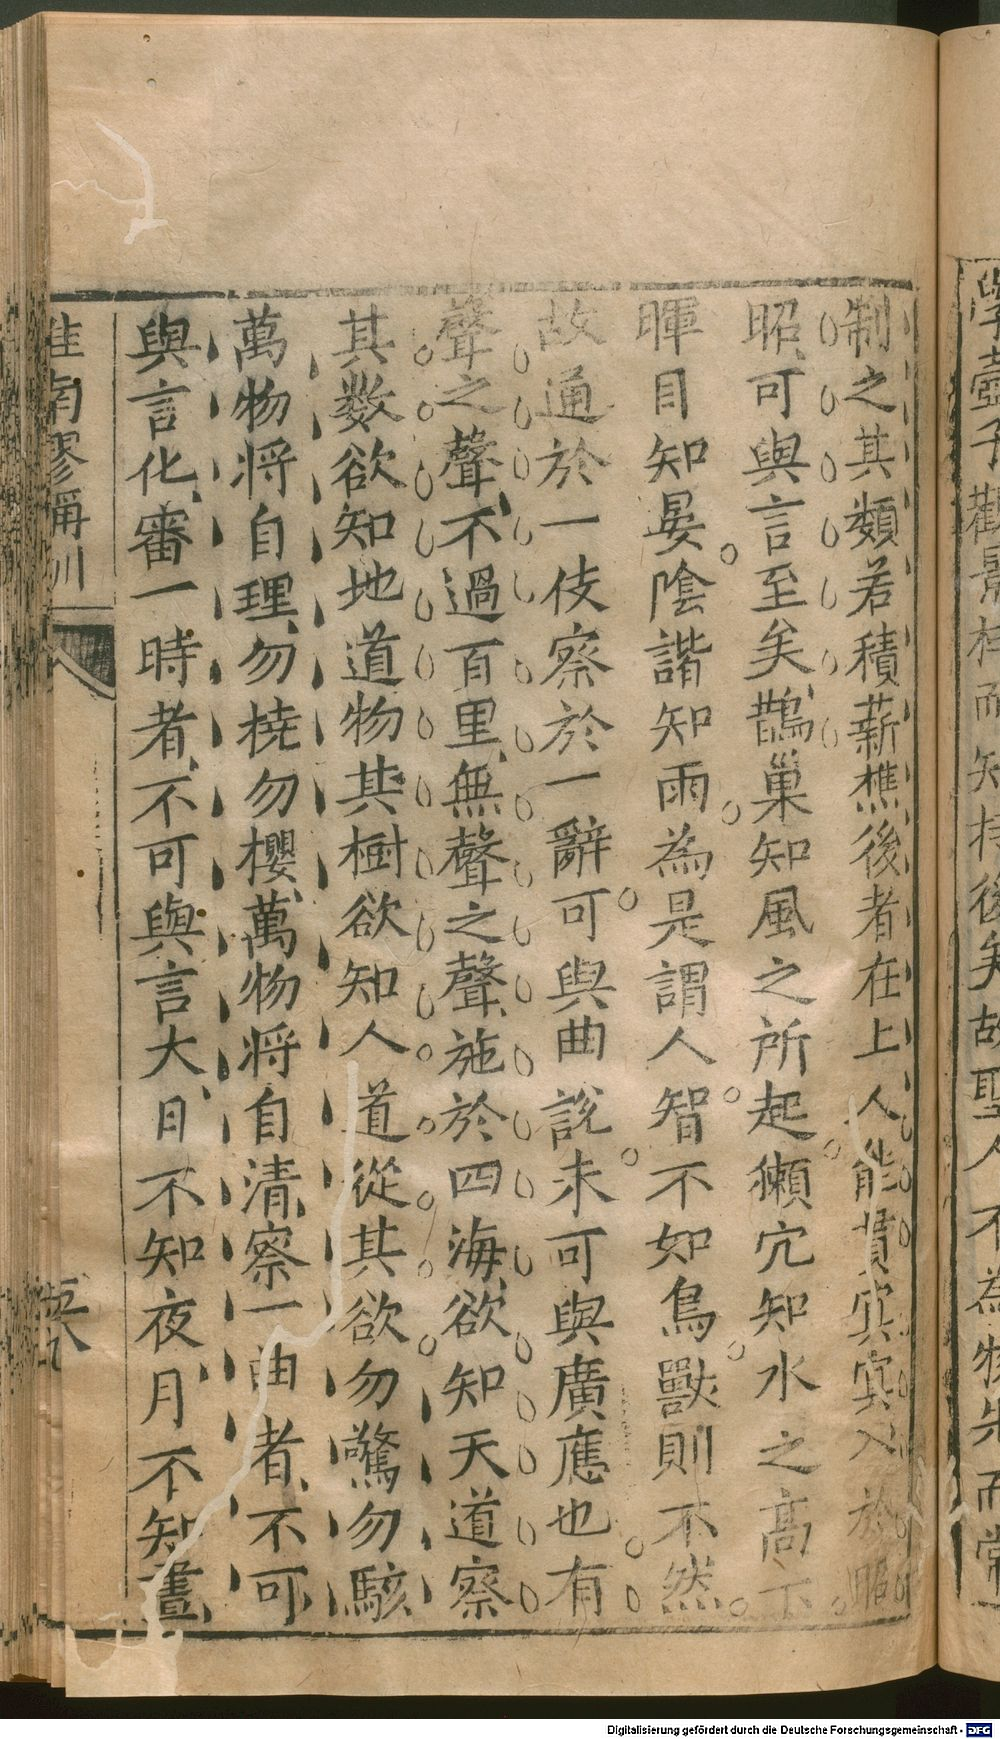 學壺子觀景柱而知持後矣故聖人不為物先而常
制之其類若積薪樵後者在上人能貫冥冥入於昭
昭可與言至矣鵲巢知風之所起獺穴知水之高下
暉目知晏陰諧知雨為是謂人智不如鳥獸則不然
故通於一伎察於一辭可與曲說未可與廣應也有
聲之聲不過百里無聲之聲施於四海欲知天道察
其数欲知地道物其樹欲知人道從其欲勿驚勿駭
萬物将自理勿撓勿攖萬物将自清察一曲者不可
與言化審一時者不可與言大日不知夜月不知晝
淮南繆稱訓
Digitalisierung gefördert durch die Deutsche Forschungsgemeinschaft - DFG